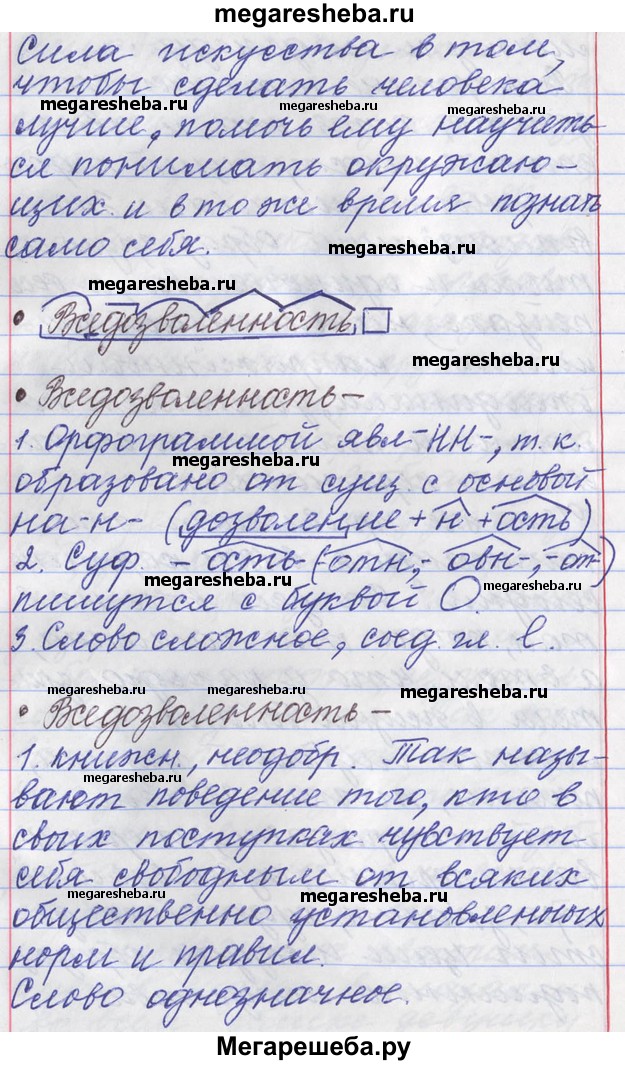 megaresheba.ru
Сила искусства в том,
чтобы сделать человека
megaresheba.ru megaresheba.ru megaresheba.ru
лучше, помочь ему научить-
ся понимать окружаю-
щих и в то же время познать
само себя.
megaresheba.ru
megaresheba.ru
• Вседозволенность
megaresheba.ru
• Вседозволенность –
1. Орфограммой явл -НН-, т.к.
megaresheba.ru
образовано от сущ. с основой
на -н- (дозволение + н + ость)
2. Суф. -ость- (-отн-, -овн-, -от-)
megaresheba.ru megaresheba.ru
пишутся с буквой О.
3. Слово сложное, соед. гл. е.
megaresheba.ru megaresheba.ru megaresheba.ru
• Вседозволенность –
1. книжн., неодобр. Так назы-
megaresheba.ru megaresheba.ru
вают поведение того, кто в
своих поступках чувствует
себя свободным от всяких
megaresheba.ru megaresheba.ru
общественно установленных
норм и правил.
Слово однозначное.
Мегарешеба.ру